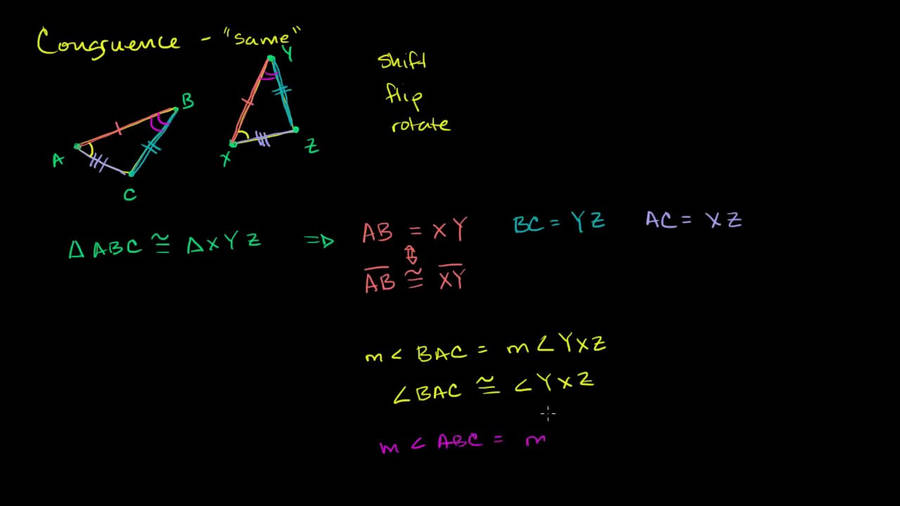 Congruence - "same"
shift
flip
rotate
A
B
C
X
Y
Z
Δ ABC ≅ Δ XYZ ⇒ AB = XY BC = YZ AC = XZ
⇕
A̅B̅ ≅ X̅Y̅
m∠BAC = m∠YXZ
∠BAC ≅ ∠YXZ
m∠ABC = m